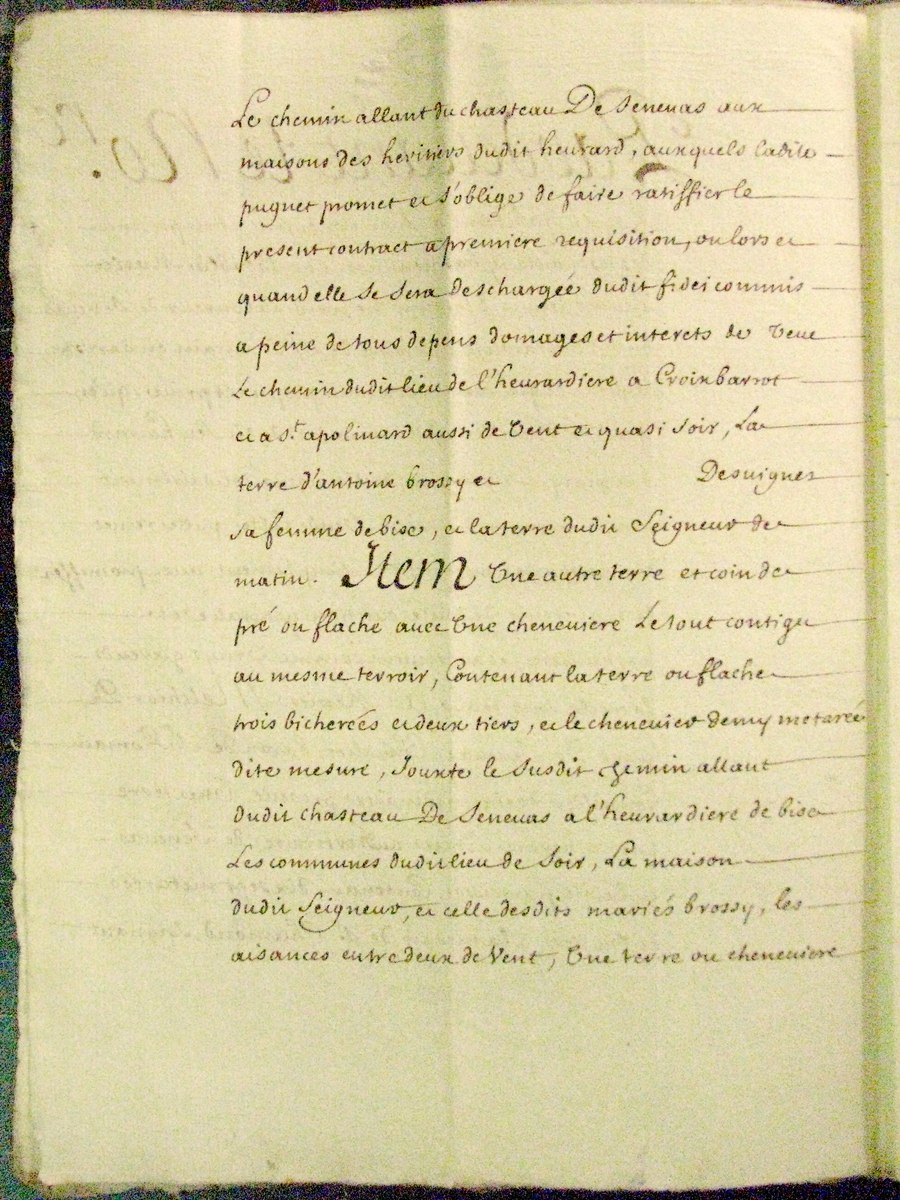 Le chemin allant du chasteau De Senevas aux
maisons des heritiers dudit heurard, auxquels ladite
puynet promet et s'oblige de faire ratiffier le
present contract a premiere requisition, ou lors et
quand elle se sera deschargée dudit fideicommis
a peine de tous depens domages et interets de
Le chemin dudit lieu de l'heurardiere a Croixbarrot
et a s.t apolinard aussi de Vent et quasi soir, La
terre d'antoine brossy et Desvignes
sa femme de bise, et la terre dudit Seigneur de
matin. Item Une autre terre et coin de
pré ou flache avec Une cheneviere Le tout contigu
au mesme terroir, Contenant la terre ou flache
trois bicherées et deux tiers, et le chenevier demy metareé
dite mesure, Jouxte le susdit chemin allant
dudit chasteau De Senevas a l'heurardiere de bise
Les communes dudit lieu de soir, La maison
dudit Seigneur, et celle desdits mariés brossy, les
aisances entre deux de Vent, Une terre ou cheneviere